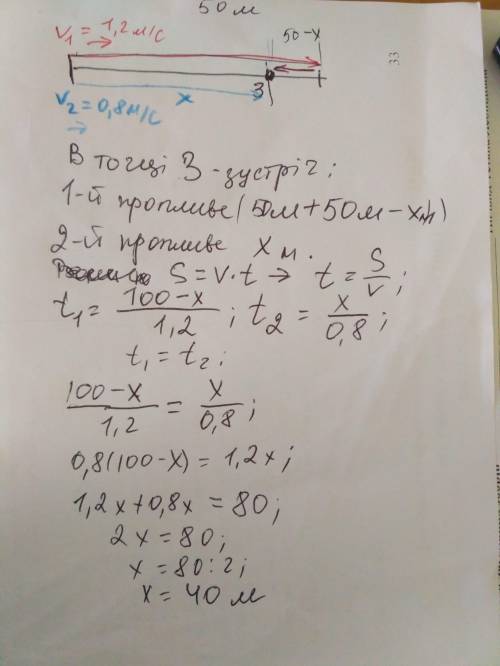 50м
V₁ = 1,2 м/с
50-x
33
x
З
V₂ = 0,8 м/с
В точці З - зустріч;
1-й пропливе (50м + 50м - xм)
2-й пропливе x м.
S = v · t → t = S/v;
t₁ = (100-x)/1,2; t₂ = x/0,8;
t₁ = t₂;
(100-x)/1,2 = x/0,8;
0,8(100-x) = 1,2x;
1,2x + 0,8x = 80;
2x = 80;
x = 80:2;
x = 40 м